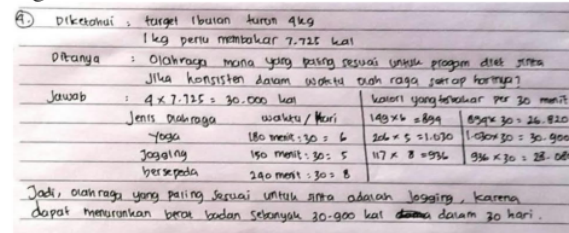 4. Diketahui : target 1 bulan turun 4kg
1 kg perlu membakar 7.725 kal
Ditanya : Olahraga mana yang paling sesuai untuk progam diet sinta
Jika konsisten dalam waktu olah raga setiap harinya?
Jawab : 4 x 7.725 = 30.000 kal
Jenis olahraga waktu/hari kalori yang terbakar per 30 menit
Yoga 180 menit : 30 = 6 149 x 6 = 894 894 x 30 = 26.820
Jogging 150 menit : 30 = 5 206 x 5 = 1.030 1.030 x 30 = 30.900
bersepeda 240 menit : 30 = 8 117 x 8 = 936 936 x 30 = 28.080
Jadi, olahraga yang paling sesuai untuk sinta adalah jogging, karena
dapat menurunkan berat badan sebanyak 30.900 kal dalam 30 hari.